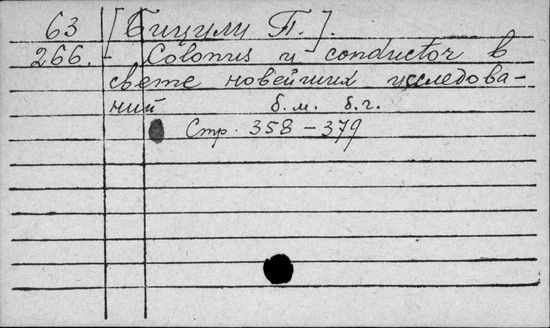 63 [Бицилли П.].
266. Colonus и conductor в
свете новейших исследова-
ний б.м. б.г.
Стр. 358-379